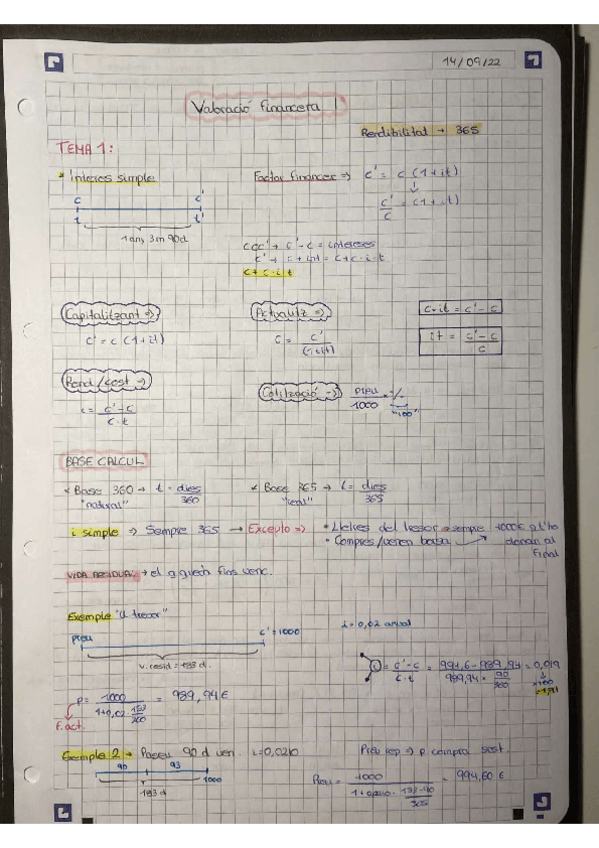 14/09/22
Valoració financera 1
Rendibilitat → 365
TEMA 1:
* Interes simple
Factor financer => c' = c (1+it)
↓
c'/c = (1+it)
c c'
t t'
1 any, 3m 90d
c' - c = interesos
c' → c + int = c + c·i·t
c + c·i·t
Capitalitzant =>
c' = c (1+it)
Actualitz =>
c = c'/(1+it)
c·it = c' - c
it = c' - c / c
Rend/cost =>
i = c' - c / c·t
Cotització => preu/1000 = %
"100"
BASE CALCUL
* Base 360 → t = dies/360
"natural"
* Base 365 → t = dies/365
"real"
i simple => Sempre 365 → Excepto =>
• Lletres del tresor → sempre 1000€ al final
• Compres/venen
VIDA RESIDUAL → el q queda fins venc.
Exemple "ll tresor"
preu c' = 1000
i = 0,02 anual
v. resid = 183 d.
P = 1000 / 1+0,02 · 183/360 = 989,94€
F. act.
i = c' - c / c·t = 994,6 - 989,94 / 989,94 · 90/360 = 0,019
×100
Exemple 2 → Passen 90 d ven. i=0,0210
90 93
1000
183 d
Preu = 1000 / 1+0,0210 · 183-90/365 = 994,60 €